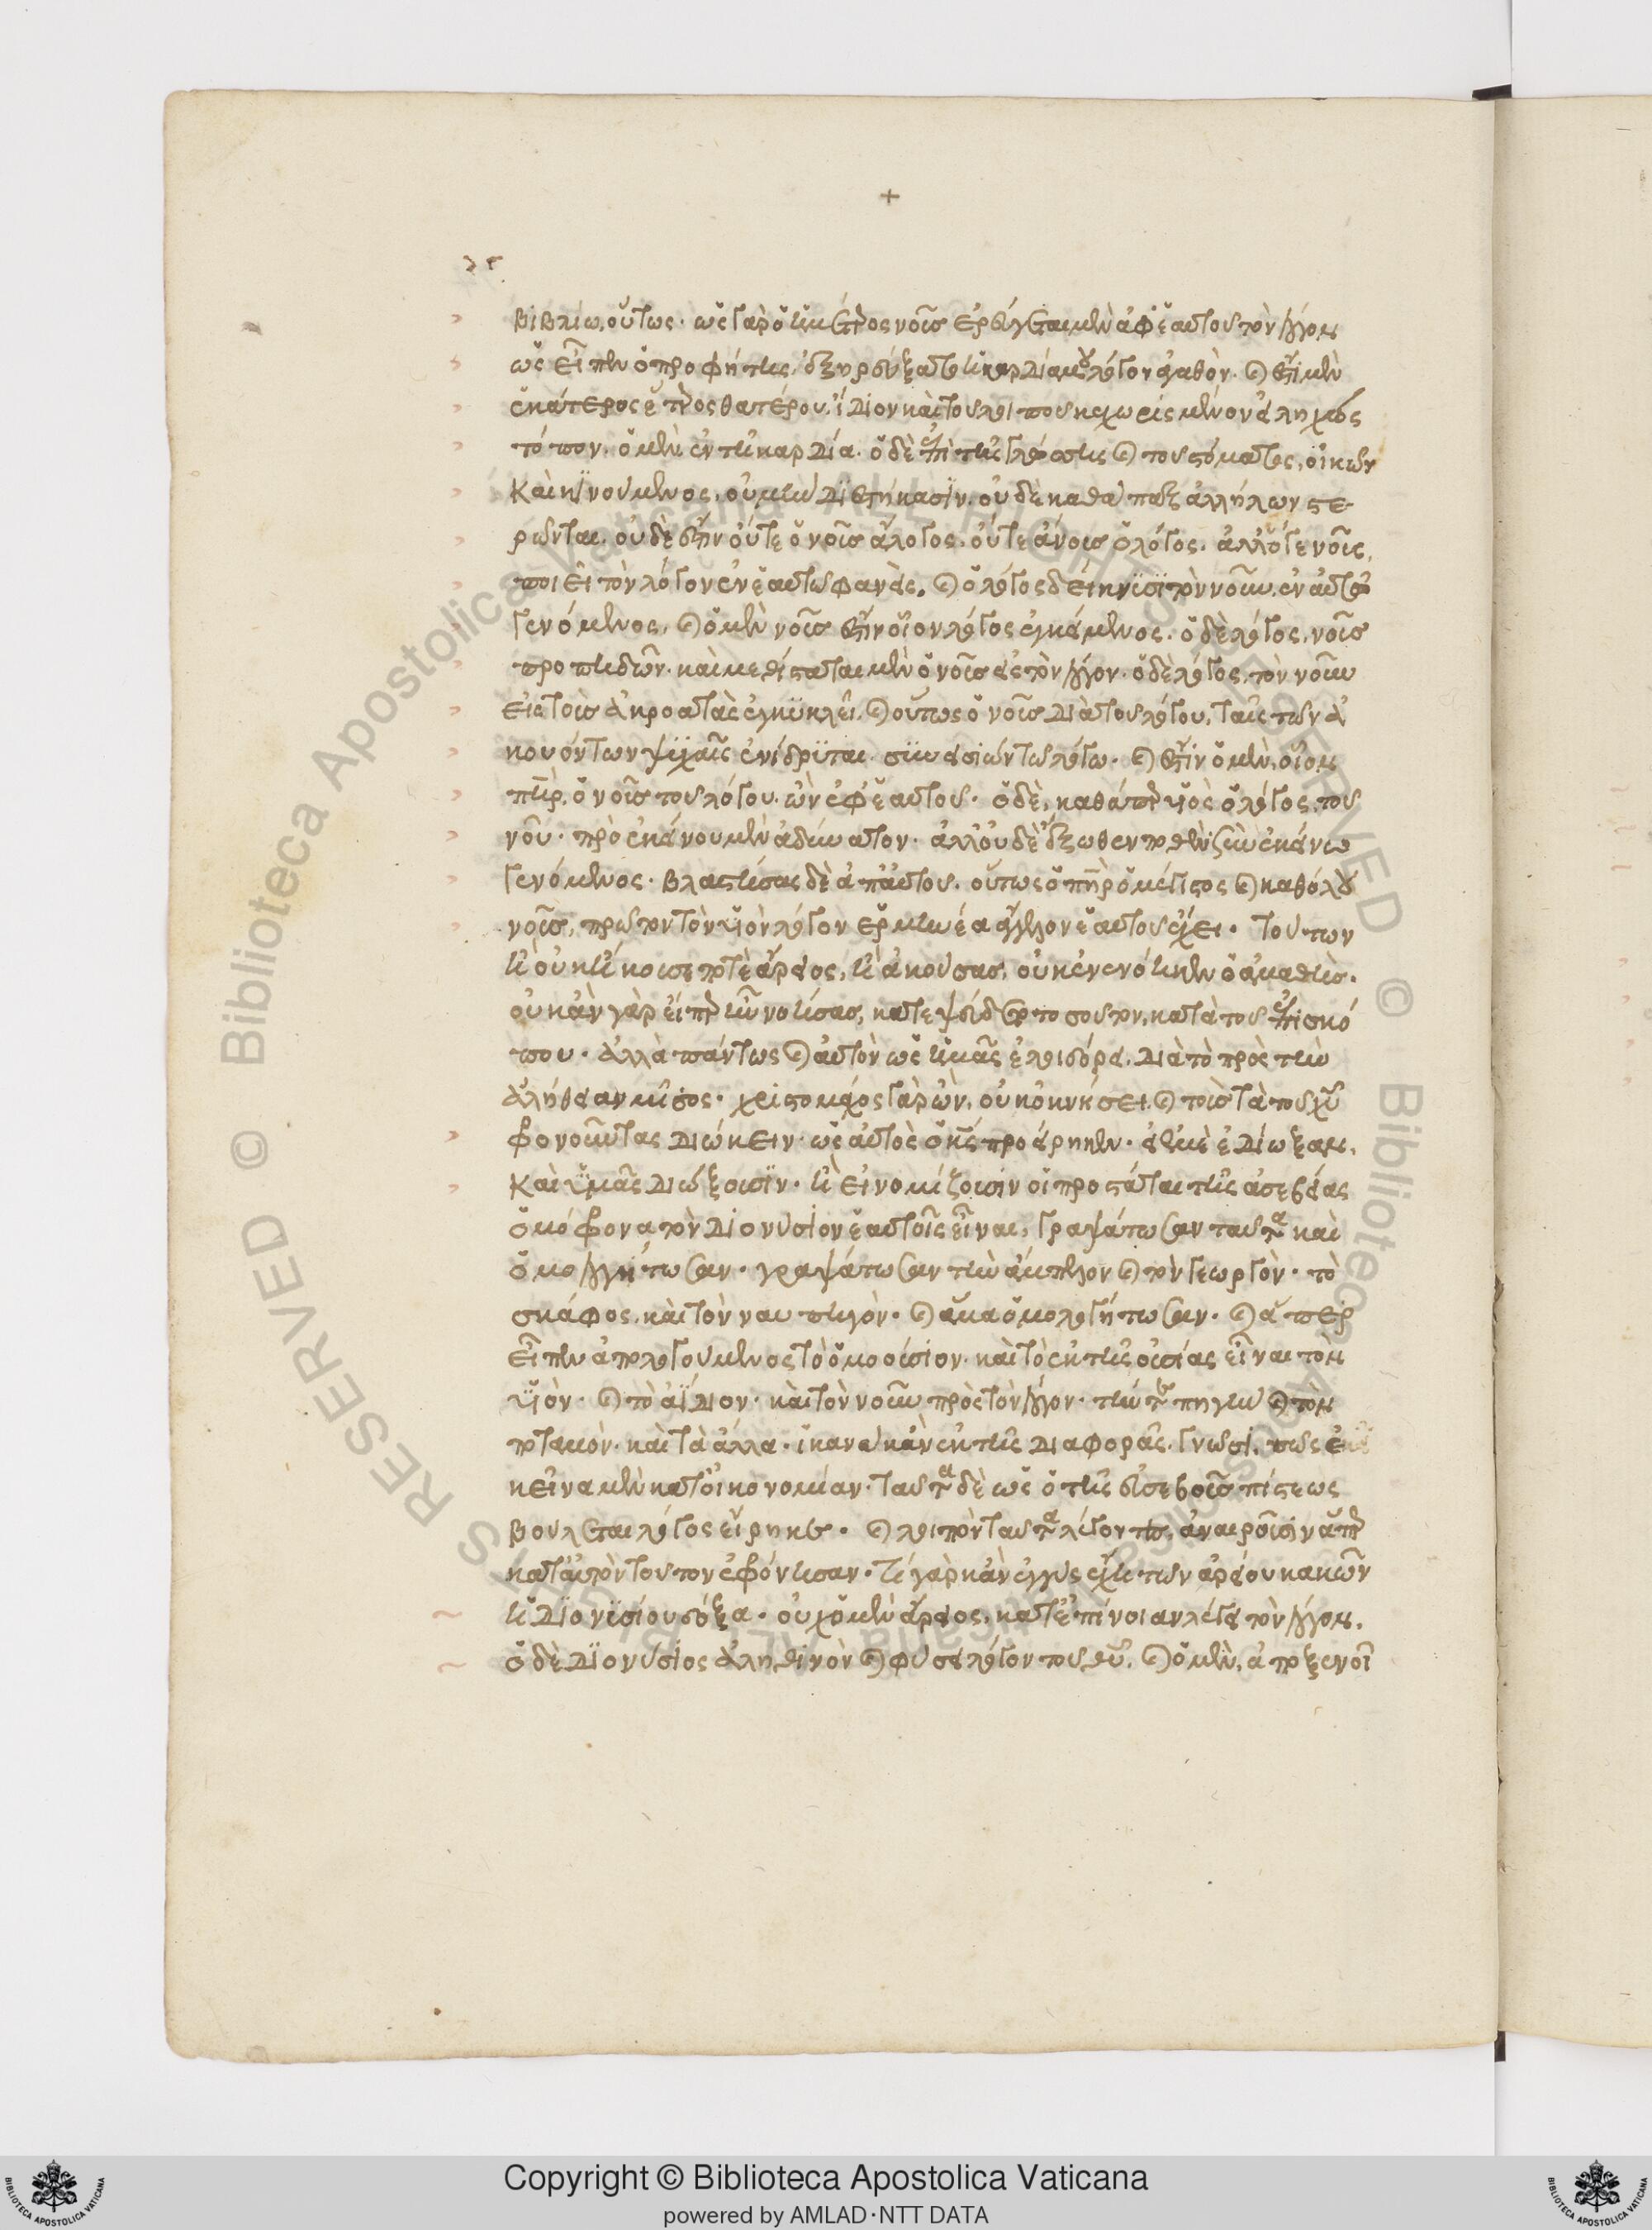 +
βιβλίω, οὕτως· ὡς γὰρ ὁ ἡμέτερος νοῦς ἐρεύγεται μὲν ἀφ' ἑαυτοῦ τὸν λόγον
ὡς εἶπεν ὁ προφήτης, ἐξηρεύξατο ἡ καρδία μου λόγον ἀγαθὸν. καὶ ἔστι μὲν
ἑκάτερος ἕτερος θατέρου, ἴδιον καὶ τοῦ λοιποῦ κεχωρισμένον εἰληχὼς
τόπον. ὁ μὲν ἐν τῆ καρδία. ὁ δὲ ἐπὶ τῆς γλώττης καὶ τοῦ στόματος, οἰκῶν
καὶ κινούμενος, οὐ μὴν διεστήκασιν. οὐδὲ καθάπαξ ἀλλήλων στέ
ρωνται. οὐδέ ἐστιν οὔτε ὁ νοῦς ἄλογος. οὔτε ἄνους ὁ λόγος. ἀλλ' ὅ γε νοῦς,
ποιεῖ τὸν λόγον ἐν ἑαυτῶ φανεὶς. καὶ ὁ λόγος δείκνυσι τὸν νοῦν. ἐν αὐτῶ
γενόμενος. καὶ ὁ μὲν νοῦς ἐστιν οἷον λόγος ἐγκείμενος. ὁ δὲ λόγος, νοῦς
προπηδῶν. καὶ μεθίσταται μὲν ὁ νοῦς εἰς τὸν λόγον. ὁ δὲ λόγος, τὸν νοῦν
εἰς τοὺς ἀκροατὰς ἐγκυκλεῖ. καὶ οὕτως ὁ νοῦς διὰ τοῦ λόγου, ταῖς τῶν ἀ
κουόντων ψυχαῖς ἐνίδρυται. συνεισιὼν τῶ λόγω. καὶ ἔστιν ὁ μὲν, οἷον
πατὴρ, ὁ νοῦς τοῦ λόγου. ὢν ἐφ' ἑαυτοῦ. ὁ δὲ, καθάπερ υἱὸς ὁ λόγος τοῦ
νοῦ. πρὸ ἐκείνου μὲν ἀδύνατον. ἀλλ' οὐδὲ ἔξωθέν ποθεν σὺν ἐκείνω
γενόμενος. βλαστήσας δὲ ἀπ' αὐτοῦ. οὕτως ὁ πατὴρ ὁ μέγιστος καὶ καθόλου
νοῦς, πρῶτον τὸν υἱὸν λόγον ἑρμηνέα ἄγγελον ἑαυτοῦ ἔχει. τούτων
ἢ οὐκ ἤκουσε ποτὲ ἄρειος, ἢ ἀκούσας, οὐκ ἐνενόηκεν ὁ ἀμαθὴς.
οὐκ ἂν γὰρ εἴπερ ἦν νοήσας, κατεψεύδετο τοσοῦτον κατὰ τοῦ ἐπισκό
που. ἀλλὰ πάντως καὶ αὐτὸν ὡς ἡμᾶς ἐλοιδόρει. διὰ τὸ πρὸς τὴν
ἀλήθειαν μῖσος. χριστομάχος γὰρ ὢν, οὐκ ὀκνήσει καὶ τοὺς τὰ τοῦ χυ
φρονοῦντας διώκειν. ὡς αὐτὸς ὁ κς προείρηκεν. εἰ ἐμὲ ἐδίωξαν,
καὶ ὑμᾶς διώξουσιν. ἢ εἰ νομίζουσιν οἱ προστάται τῆς ἀσεβείας
ὁμόφρονα τὸν διονύσιον ἑαυτοῖς εἶναι, γραψάτωσαν ταῦτα καὶ
ὁμολογήτωσαν. γραψάτωσαν τὴν ἄμπελον καὶ τὸν γεωργὸν. τὸ
σκάφος, καὶ τὸν ναυπηγὸν. καὶ ἅμα ὁμολογήτωσαν. καὶ ἅπερ
εἶπεν ἀπολογούμενος τὸ ὁμοούσιον. καὶ τὸ ἐκ τῆς οὐσίας εἶναι τὸν
υἱὸν. καὶ τὸ ἀΐδιον. καὶ τὸν νοῦν πρὸς τὸν λόγον. τήν τε πηγὴν καὶ τὸν
ποταμὸν. καὶ τὰ ἄλλα. ἵνα κἂν ἐκ τῆς διαφορᾶς, γνῶσι, πῶς ἐ
κεῖνα μὲν κατ' οἰκονομίαν. ταῦτα δὲ ὡς ὁ τῆς εὐσεβοῦς πίστεως
βούλεται λόγος εἴρηκε. καὶ λοιπὸν ταῦτα λέγοντες, ἀναιροῦσιν ἅπερ
κατ' αὐτὸν τοῦτον ἐφρόνησαν. τί γὰρ κἂν ἐγγὺς ἔχει τῶν ἀρείου κακῶν
ἡ διονυσίου δόξα. οὐχ ὁ μὲν ἄρειος, κατ' ἐπίνοιαν λέγει τὸν λόγον.
ὁ δὲ διονύσιος ἀληθινὸν καὶ φύσει λόγον τοῦ θυ. καὶ ὁ μὲν, ἀποξενοῖ
Copyright © Biblioteca Apostolica Vaticana
powered by AMLAD·NTT DATA